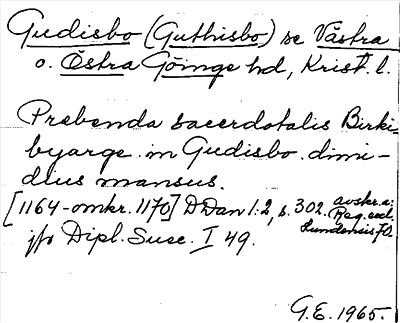 Gudisbo (Guthisbo) se Västra
o. Östra Göinge hd, Krist. l.
Prebenda sacerdotalis Birki-
byarge in Gudisbo dimi-
dius mansus.
[1164-omkr. 1170] DDan 1:2, s. 302. avskr. i:
Reg. eccl.
Lundensis 70.
jfr Dipl. Suec. I 49.
G.E. 1965.